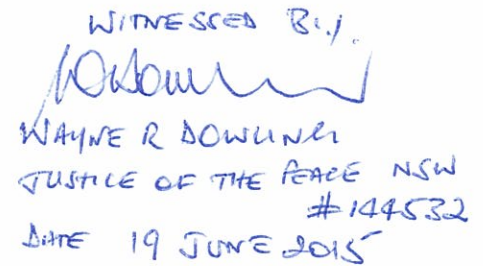 WITNESSED By.
WAYNE R DOWLING
JUSTICE OF THE PEACE NSW
#144532
DATE 19 JUNE 2015